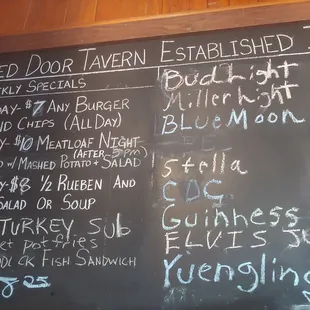 ED DOOR TAVERN ESTABLISHED
KLY SPECIALS
AY- $7 ANY BURGER
ND CHIPS (ALL DAY)
Y- $10 MEATLOAF NIGHT
(AFTER 5PM)
D W/ MASHED POTATO + SALAD
Y-$8 ½ RUEBEN AND
SALAD OR SOUP
TURKEY Sub
et pot fries
DDOCK FISH SANDWICH
8.25
Bud Light
Miller Light
BLUE MOON
Stella
CDC
Guinness
ELVIS
Yuengling